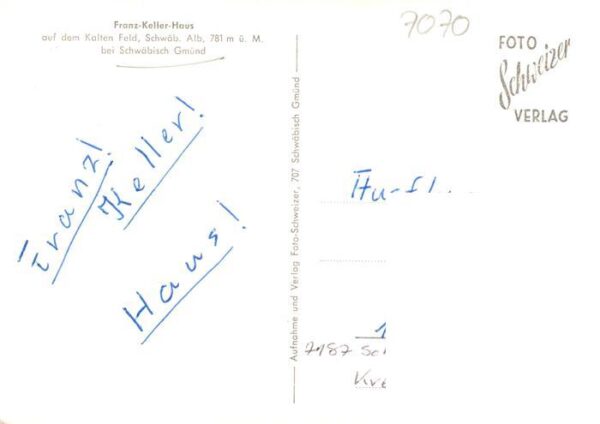 Franz-Keller-Haus
auf dem Kalten Feld, Schwäb. Alb, 781 m ü. M.
bei Schwäbisch Gmünd
7070
FOTO
Schweizer
VERLAG
Franz!
Keller!
Haus!
Aufnahme und Verlag Foto-Schweizer, 707 Schwäbisch Gmünd
1
7187